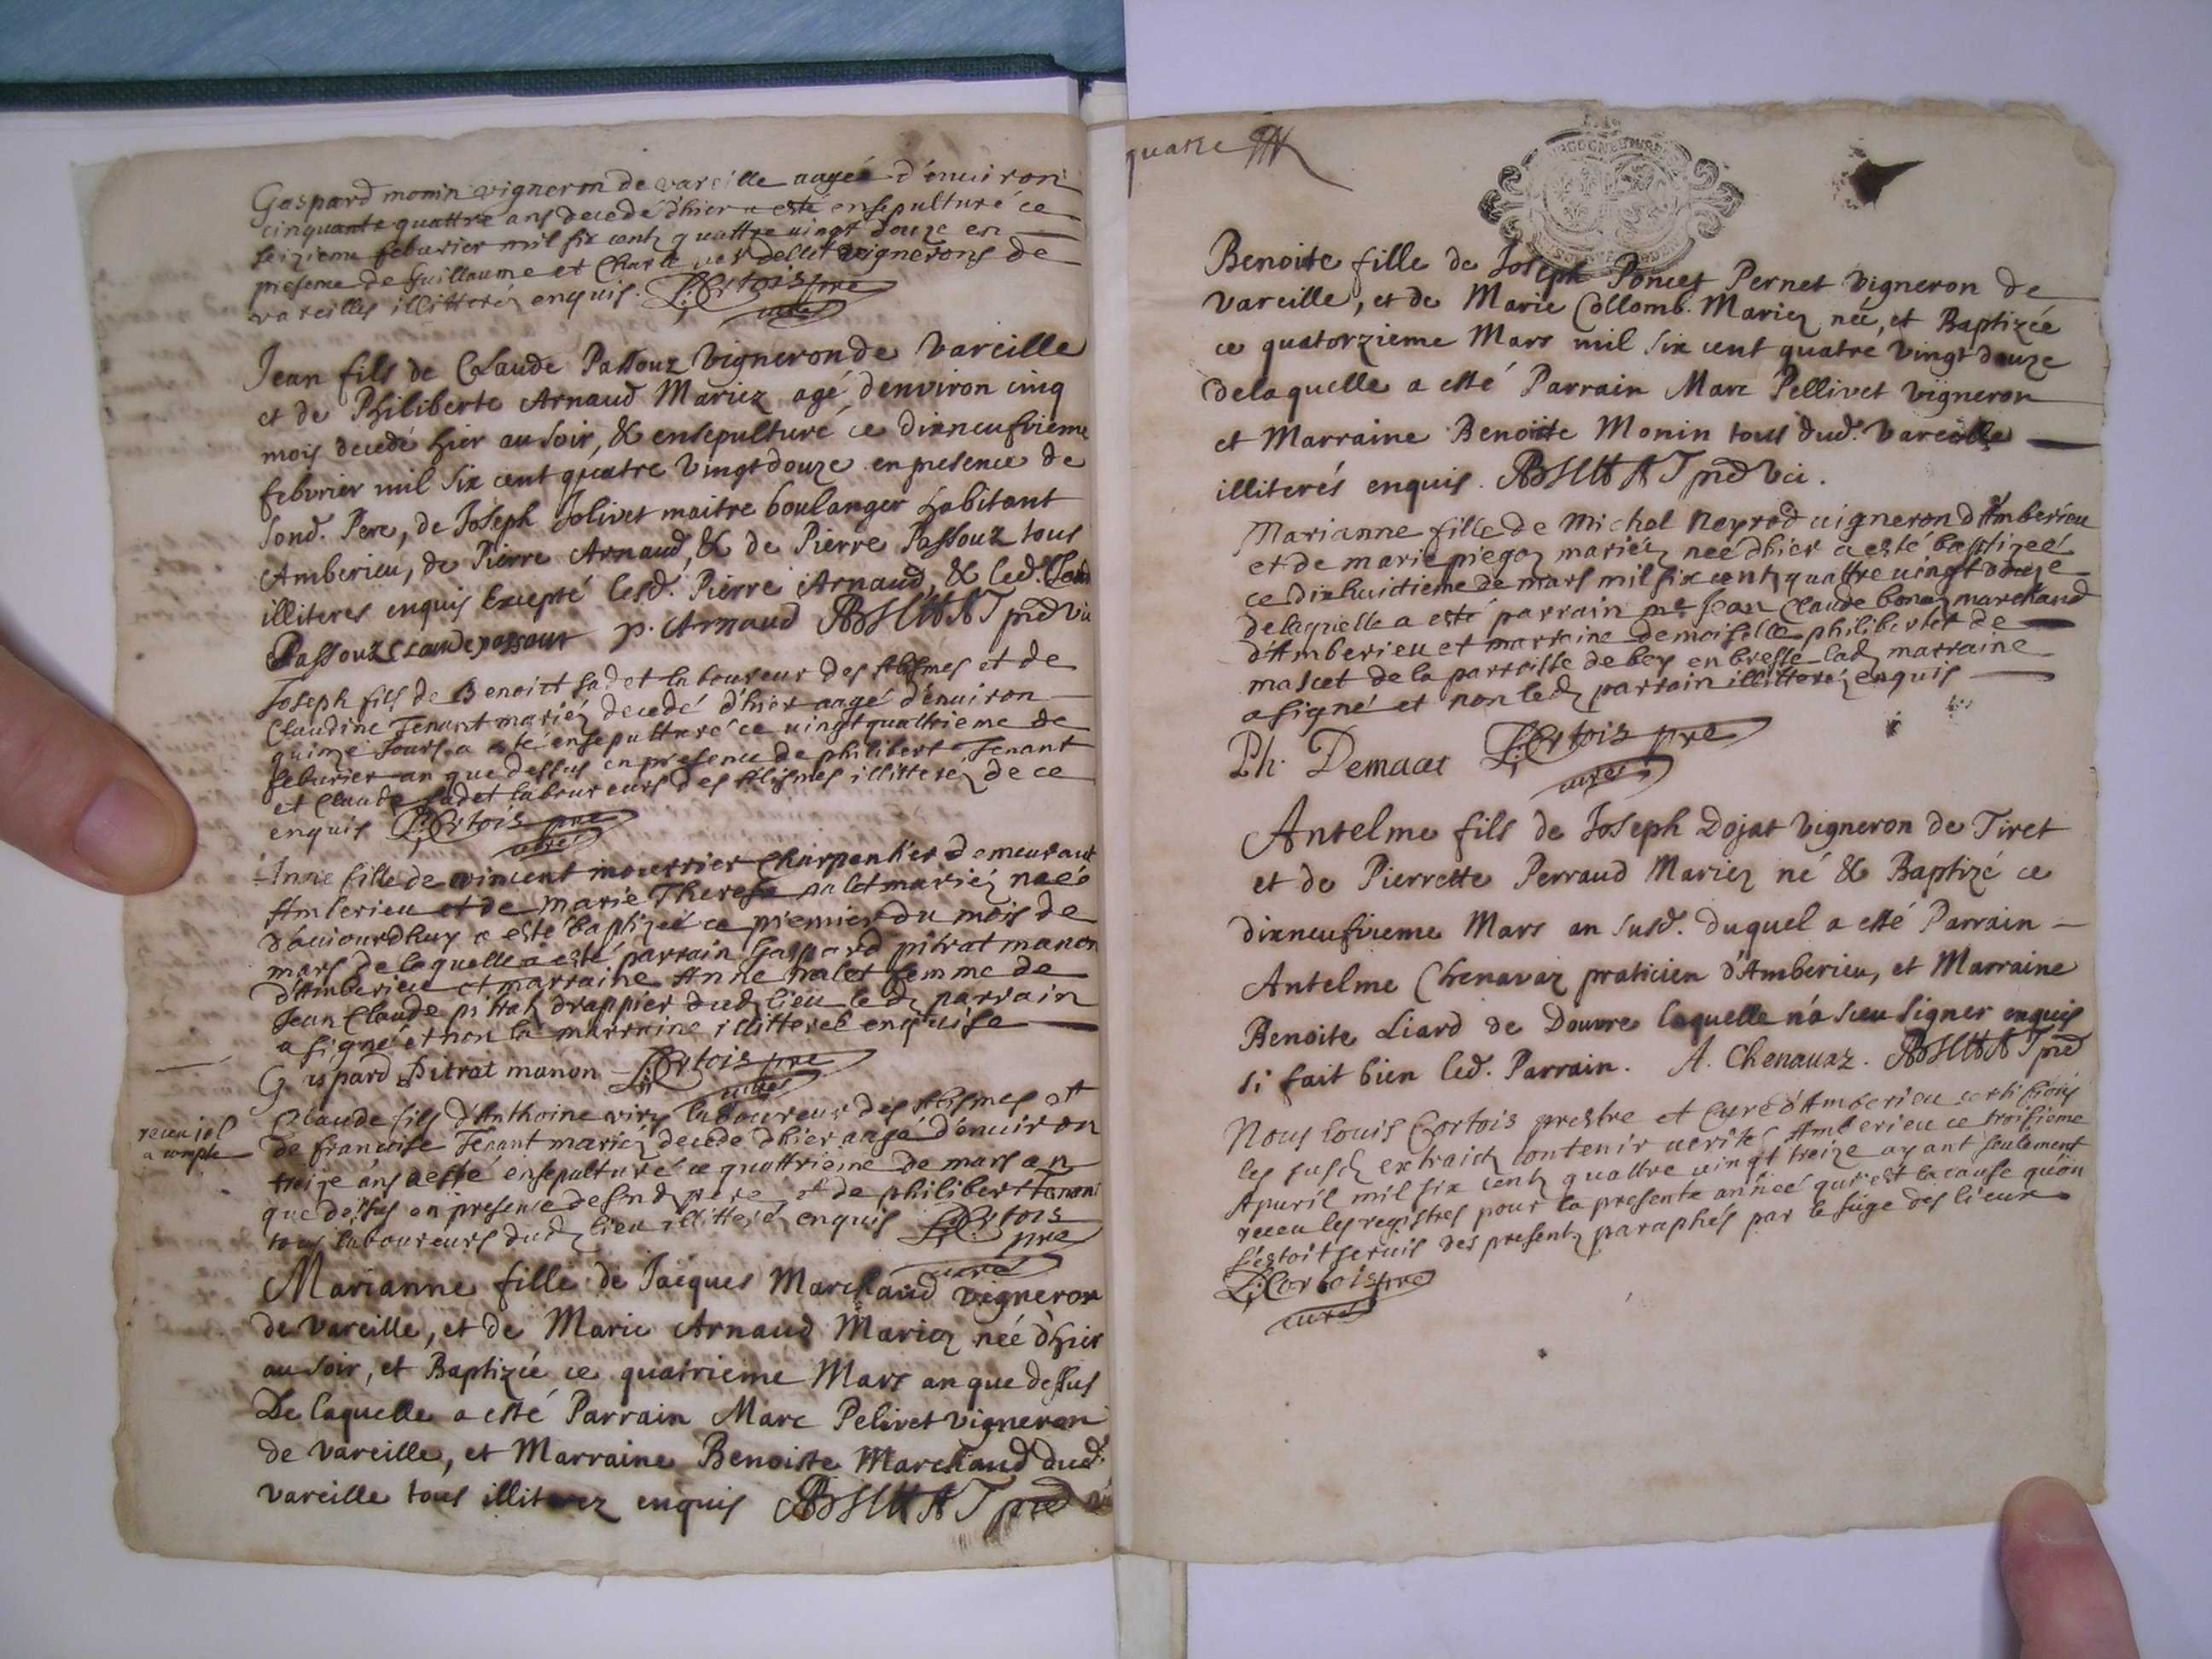 Gaspard monin vigneron de vareille aagé d'enuiron
cinquante quattre ans decedé d'hier a esté ensepulturé ce
seizieme feburier mil six centz quattre uingt douze en
presence de Guillaume et Charle vignerons de
vareilles illitterés enquis. L: Cortois pre
curé
Jean fils de Claude Passouz Vigneron de Vareille
et de Philiberte Arnaud Mariez agé d'environ cinq
mois decedé hier au soir, & ensepulturé ce dixneufvieme
febvrier mil six cent quatre Vingt douze en presence de
sond. Pere, de Joseph Jolivet maitre boulanger habitant
Amberieu, de Pierre Arnaud, & de Pierre Passouz tous
illiteres enquis Excepté lesd. Pierre Arnaud, & led.
Passouz Claude passout p. Arnaud
Joseph fils de Benoict sadet laboureur des Abismes et de
Claudine Tenant mariéz decedé d'hier aagé d'enuiron
quinze Jours a esté ensepulturé ce uingt quattrieme de
feburier an que dessus en presence de philibert Tenant
et Claude sadet laboureurs des Abismes illitteréz de ce
enquis L: Cortois pre
curé
Anne fille de vincent mourrier Charpentier demeurant
Amberieu et de marie Therese mariéz neé
d'aujourdhuy a esté baptizeé ce premier du mois de
mars de laquelle a esté parrain Gaspard pitrat manon
d'Amberieu et marraine Anne femme de
Jean Claude drappier dudz lieu ledz parrain
a signé et non la marraine illittereé enquise
Gaspard Pitrat manon L: Cortois pre
curé
receu jcl
a compte
Claude fils d'Anthoine laboureur des Abismes et
de francoise Tenant mariéz decedé d'hier aagé d'enuiron
treize ans a esté ensepulturé ce quattrieme de mars an
que dessus en presence de sondz pere et de philibert Tenant
tous laboureurs dudz lieu illitteréz enquis L: Cortois
pre
curé
Marianne fille de Jacques Marchand vigneron
de vareille, et de Marie Arnaud Mariez née d'hier
au soir, et Baptizée ce quatrieme Mars an que dessus
De laquelle a esté Parrain Marc Pelivet vigneron
de Vareille, et Marraine Benoiste Marchand dud.
vareille tous illiterez enquis
quatre
Benoite fille de Joseph Poncet Pernet Vigneron de
Vareille, et de Marie Collomb Mariez née, et Baptizée
ce quatorzieme Mars mil six cent quatre Vingt douze
de laquelle a esté Parrain Marc Pellivet Vigneron
et Marraine Benoite Monin tous dud. Vareille
illiterés enquis.
Marianne fille de Michel Neyrod uigneron d'Amberieu
et de marie mariéz neé d'hier a esté baptizeé
ce dixhuictieme de mars mil six centz quattre uingt douze
de laquelle a esté parrain me Jean Claude marchand
d'Amberieu et marraine demoiselle philiberte de
mascet de la parroisse de bey en bresse ladz marraine
a signé et non ledz parrain illitteréz enquis
Ph. L: Cortois pre
curé
Antelme fils de Joseph Dojat Vigneron de Tiret
et de Pierrette Perraud Mariez né & Baptizé ce
dixneufvieme Mars an susd. duquel a esté Parrain
Antelme Chenavaz praticien d'Amberieu, et Marraine
Benoite Liard de Douvre laquelle n'a sceu signer enquis
si fait bien led. Parrain. A. Chenauaz.
Nous louis Cortois prestre et Curé d'Amberieu certifions
les susdz extraictz contenir uerités Amberieu ce troisieme
Apuril mil six centz quattre uingt treize ayant seulement
receu les registres pour la presente anneé qui est la cause qu'on
s'estoit seruis des presentz paraphés par le Juge des lieux
L: Cortois pre
curé